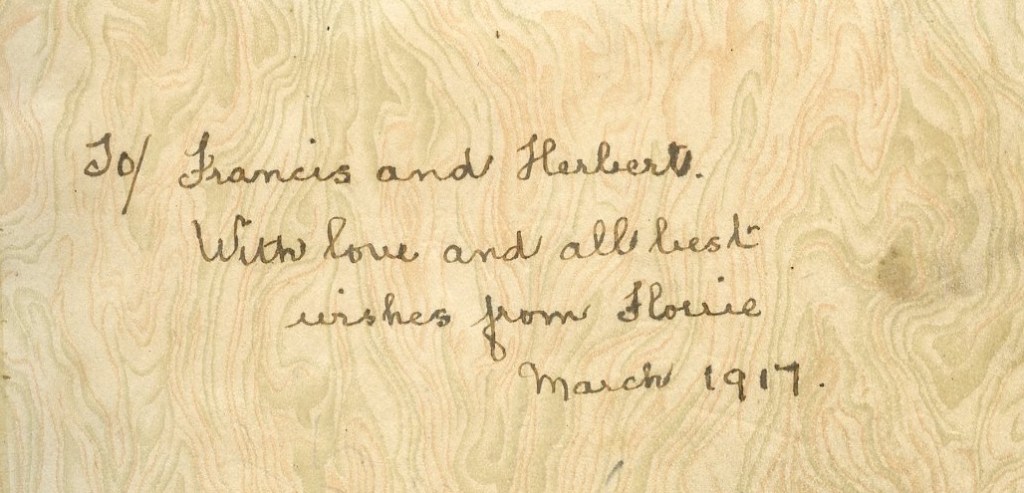 To/ Francis and Herbert.
With love and all best
wishes from Florrie
March 1917.